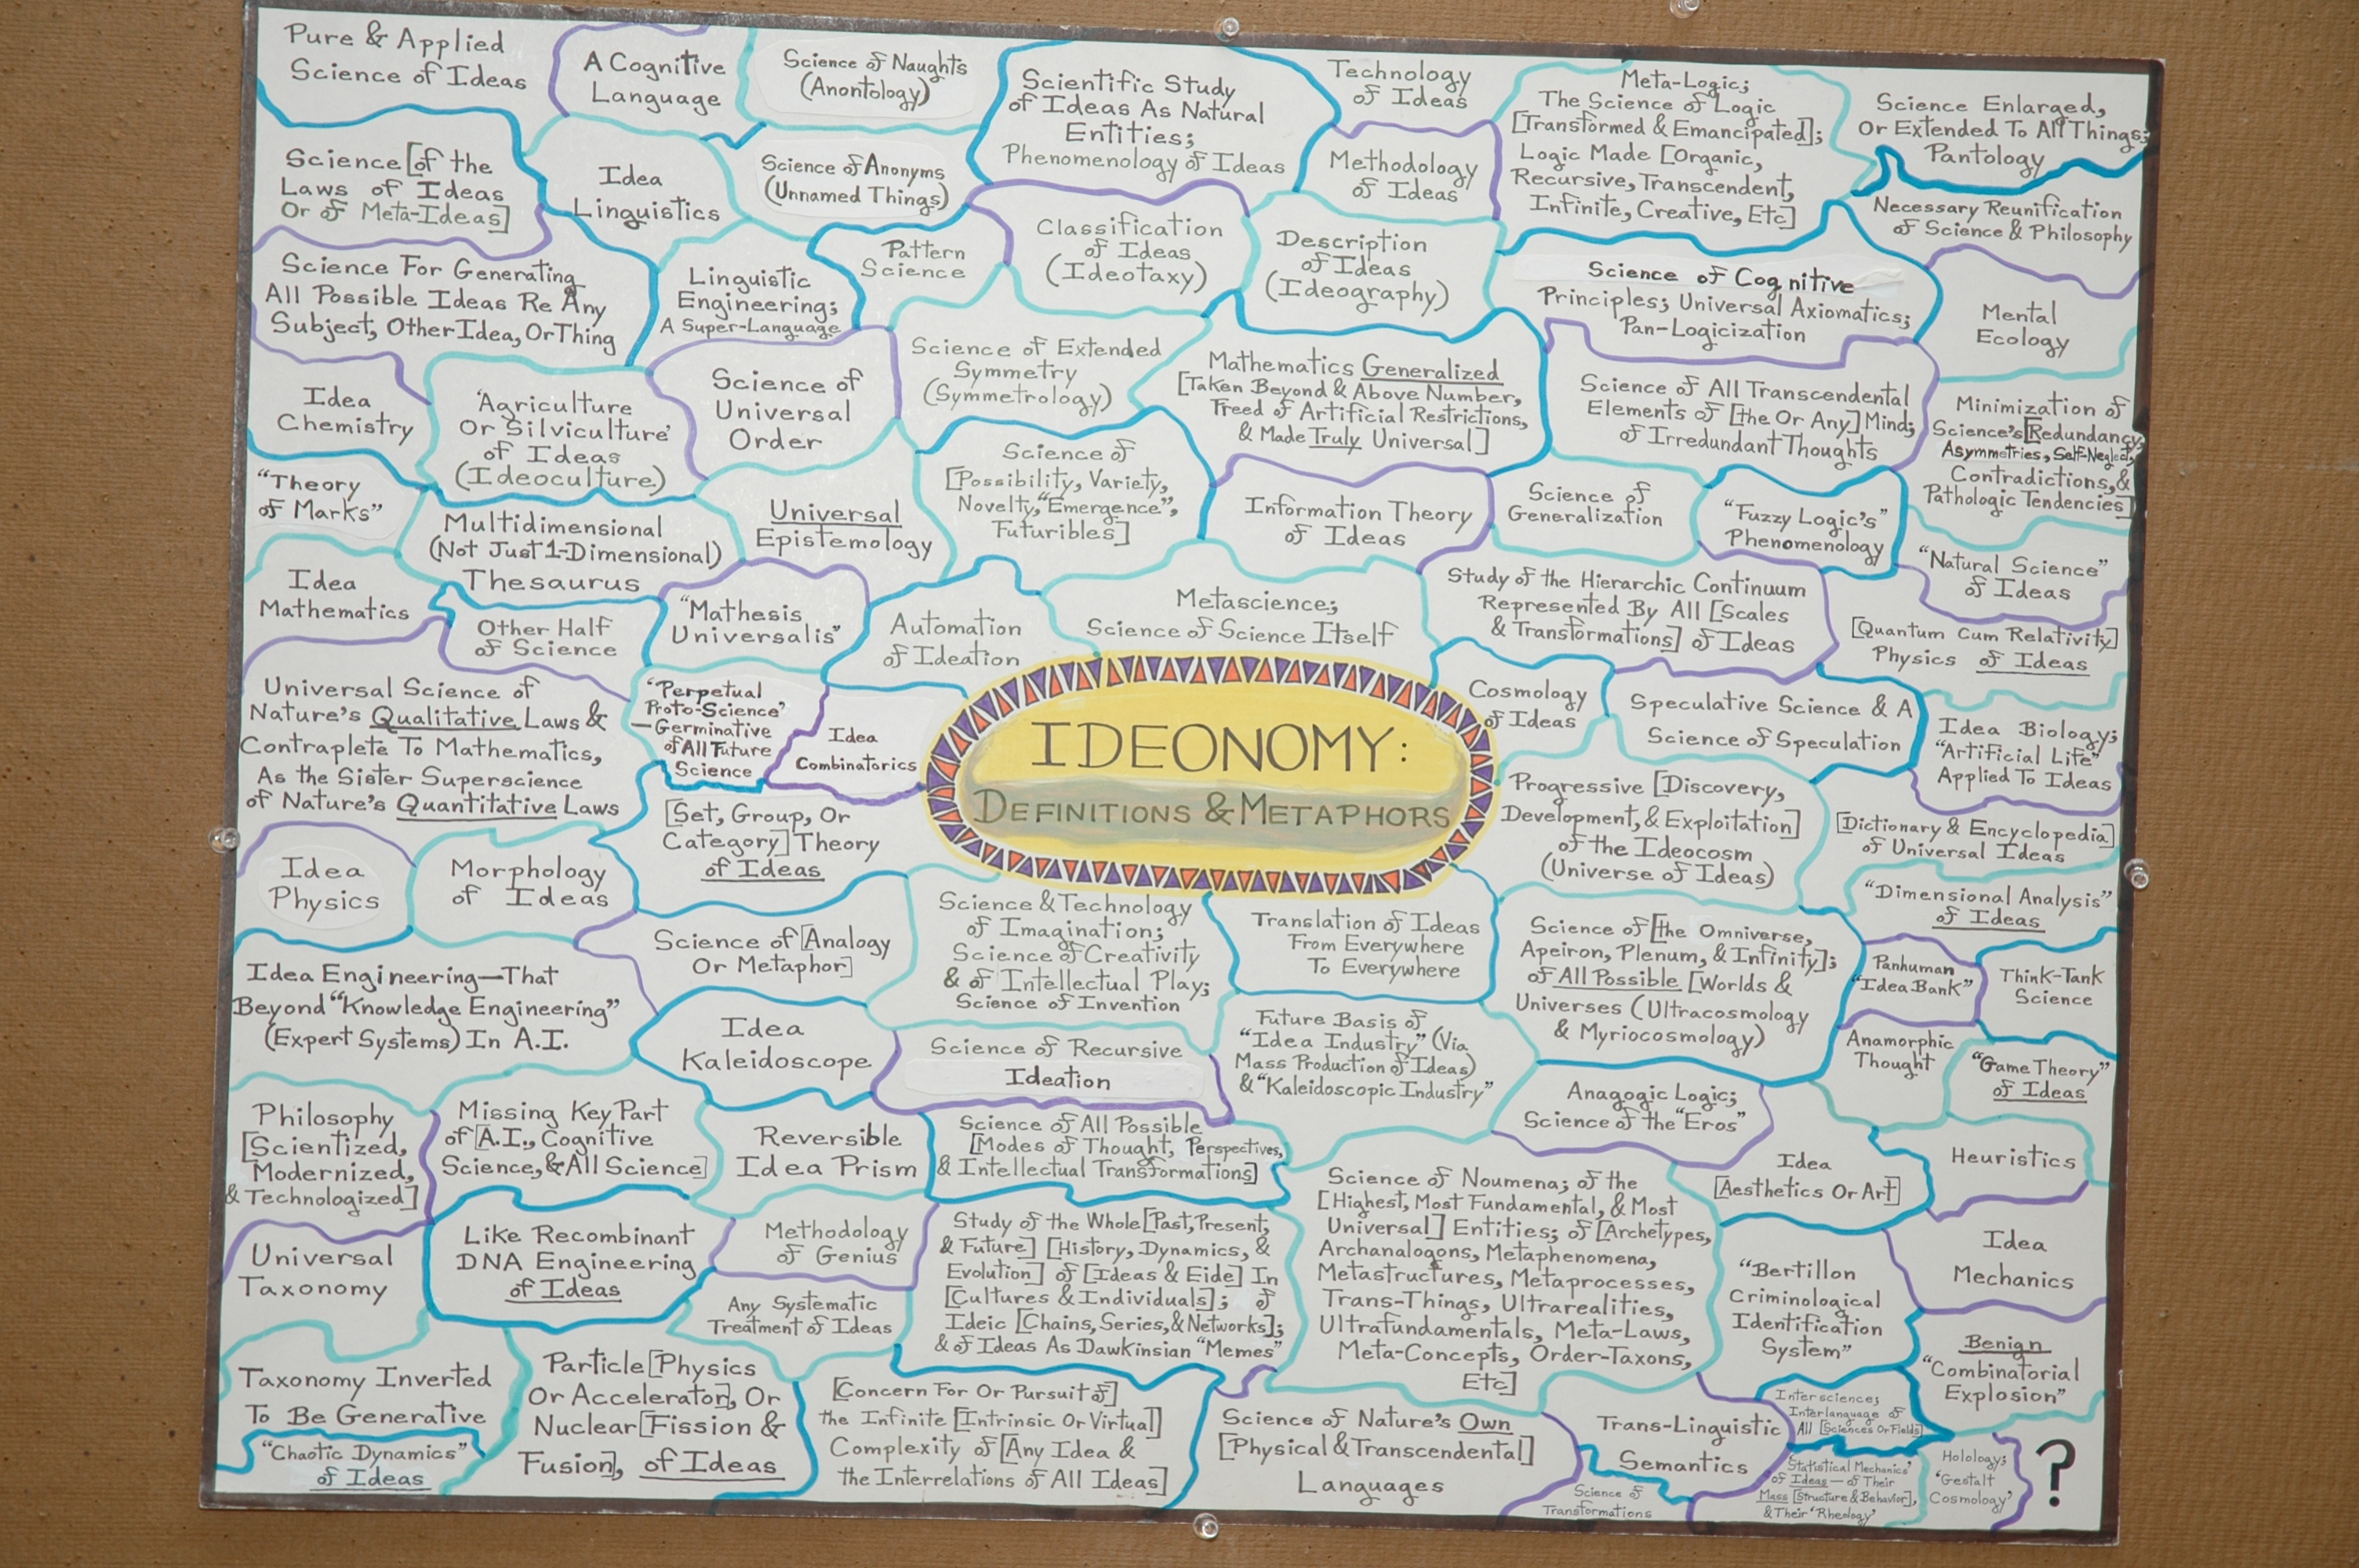 Pure & Applied
Science of Ideas
A Cognitive
Language
Science of Naughts
(Anontology)
Scientific Study
of Ideas As Natural
Entities;
Phenomenology of Ideas
Technology
of Ideas
Meta-Logic;
The Science of Logic
[Transformed & Emancipated];
Logic Made [Organic,
Recursive, Transcendent,
Infinite, Creative, Etc]
Science Enlarged,
Or Extended To All Things;
Pantology
Science [of the
Laws of Ideas
Or of Meta-Ideas]
Idea
Linguistics
Science of Anonyms
(Unnamed Things)
Methodology
of Ideas
Necessary Reunification
of Science & Philosophy
Science For Generating
All Possible Ideas Re Any
Subject, Other Idea, Or Thing
Linguistic
Engineering;
A Super-Language
Pattern
Science
Classification
of Ideas
(Ideotaxy)
Description
of Ideas
(Ideography)
Science of Cognitive
Principles; Universal Axiomatics;
Pan-Logicization
Mental
Ecology
Idea
Chemistry
'Agriculture
Or Silviculture'
of Ideas
(Ideoculture)
Science of
Universal
Order
Science of Extended
Symmetry
(Symmetrology)
Mathematics Generalized
[Taken Beyond & Above Number,
Freed of Artificial Restrictions,
& Made Truly Universal]
Science of All Transcendental
Elements of [the Or Any] Mind;
of Irredundant Thoughts
Minimization of
Science's [Redundancy,
Asymmetries, Self-Neglect,
Contradictions, &
Pathologic Tendencies]
"Theory
of Marks"
Multidimensional
(Not Just 1-Dimensional)
Thesaurus
Universal
Epistemology
Science of
[Possibility, Variety,
Novelty, "Emergence",
Futuribles]
Information Theory
of Ideas
Science of
Generalization
"Fuzzy Logic's"
Phenomenology
"Natural Science"
of Ideas
Idea
Mathematics
Other Half
of Science
"Mathesis
Universalis"
Automation
of Ideation
Metascience;
Science of Science Itself
Study of the Hierarchic Continuum
Represented By All [Scales
& Transformations] of Ideas
[Quantum Cum Relativity]
Physics of Ideas
Universal Science of
Nature's Qualitative Laws &
Contraplete To Mathematics,
As the Sister Superscience
of Nature's Quantitative Laws
"Perpetual
Proto-Science"
—Germinative
of All Future
Science
Idea
Combinatorics
IDEONOMY:
DEFINITIONS & METAPHORS
Cosmology
of Ideas
Speculative Science & A
Science of Speculation
Idea Biology;
"Artificial Life"
Applied To Ideas
[Set, Group, Or
Category] Theory
of Ideas
Progressive [Discovery,
Development, & Exploitation]
of the Ideocosm
(Universe of Ideas)
[Dictionary & Encyclopedia]
of Universal Ideas
Idea
Physics
Morphology
of Ideas
"Dimensional Analysis"
of Ideas
Science of [Analogy
Or Metaphor]
Science & Technology
of Imagination;
Science of Creativity
& of Intellectual Play;
Science of Invention
Translation of Ideas
From Everywhere
To Everywhere
Science of [the Omniverse,
Apeiron, Plenum, & Infinity];
of All Possible [Worlds &
Universes (Ultracosmology
& Myriocosmology)
Panhuman
"Idea Bank"
Think-Tank
Science
Idea Engineering—That
Beyond "Knowledge Engineering"
(Expert Systems) In A.I.
Idea
Kaleidoscope
Science of Recursive
Ideation
Future Basis of
"Idea Industry" (Via
Mass Production of Ideas)
& "Kaleidoscopic Industry"
Anamorphic
Thought
"Game Theory"
of Ideas
Philosophy
[Scientized,
Modernized,
& Technologized]
Missing Key Part
of [A.I., Cognitive
Science, & All Science]
Reversible
Idea Prism
Science of All Possible
[Modes of Thought, Perspectives,
& Intellectual Transformations]
Anagogic Logic;
Science of the "Eros"
Idea
[Aesthetics Or Art]
Heuristics
Universal
Taxonomy
Like Recombinant
DNA Engineering
of Ideas
Methodology
of Genius
Study of the Whole [Past, Present,
& Future] [History, Dynamics, &
Evolution] of [Ideas & Eide] In
[Cultures & Individuals]; of
Ideic [Chains, Series, & Networks];
& of Ideas As Dawkinsian "Memes"
Science of Noumena; of the
[Highest, Most Fundamental, & Most
Universal] Entities; of [Archetypes,
Archanalogons, Metaphenomena,
Metastructures, Metaprocesses,
Trans-Things, Ultrarealities,
Ultrafundamentals, Meta-Laws,
Meta-Concepts, Order-Taxons,
Etc]
"Bertillon
Criminological
Identification
System"
Idea
Mechanics
Any Systematic
Treatment of Ideas
Benign
"Combinatorial
Explosion"
Taxonomy Inverted
To Be Generative
"Chaotic Dynamics"
of Ideas
Particle [Physics
Or Accelerator], Or
Nuclear [Fission &
Fusion], of Ideas
[Concern For Or Pursuit of]
the Infinite [Intrinsic Or Virtual]
Complexity of [Any Idea &
the Interrelations of All Ideas]
Science of Nature's Own
[Physical & Transcendental]
Languages
Trans-Linguistic
Semantics
Science of
Transformations
Interscience;
Interlanguage of
All [Sciences Or Fields]
'Statistical Mechanics'
of Ideas—of Their
Mass [Structure & Behavior],
& Their 'Rheology'
Holology;
'Gestalt
Cosmology'
?